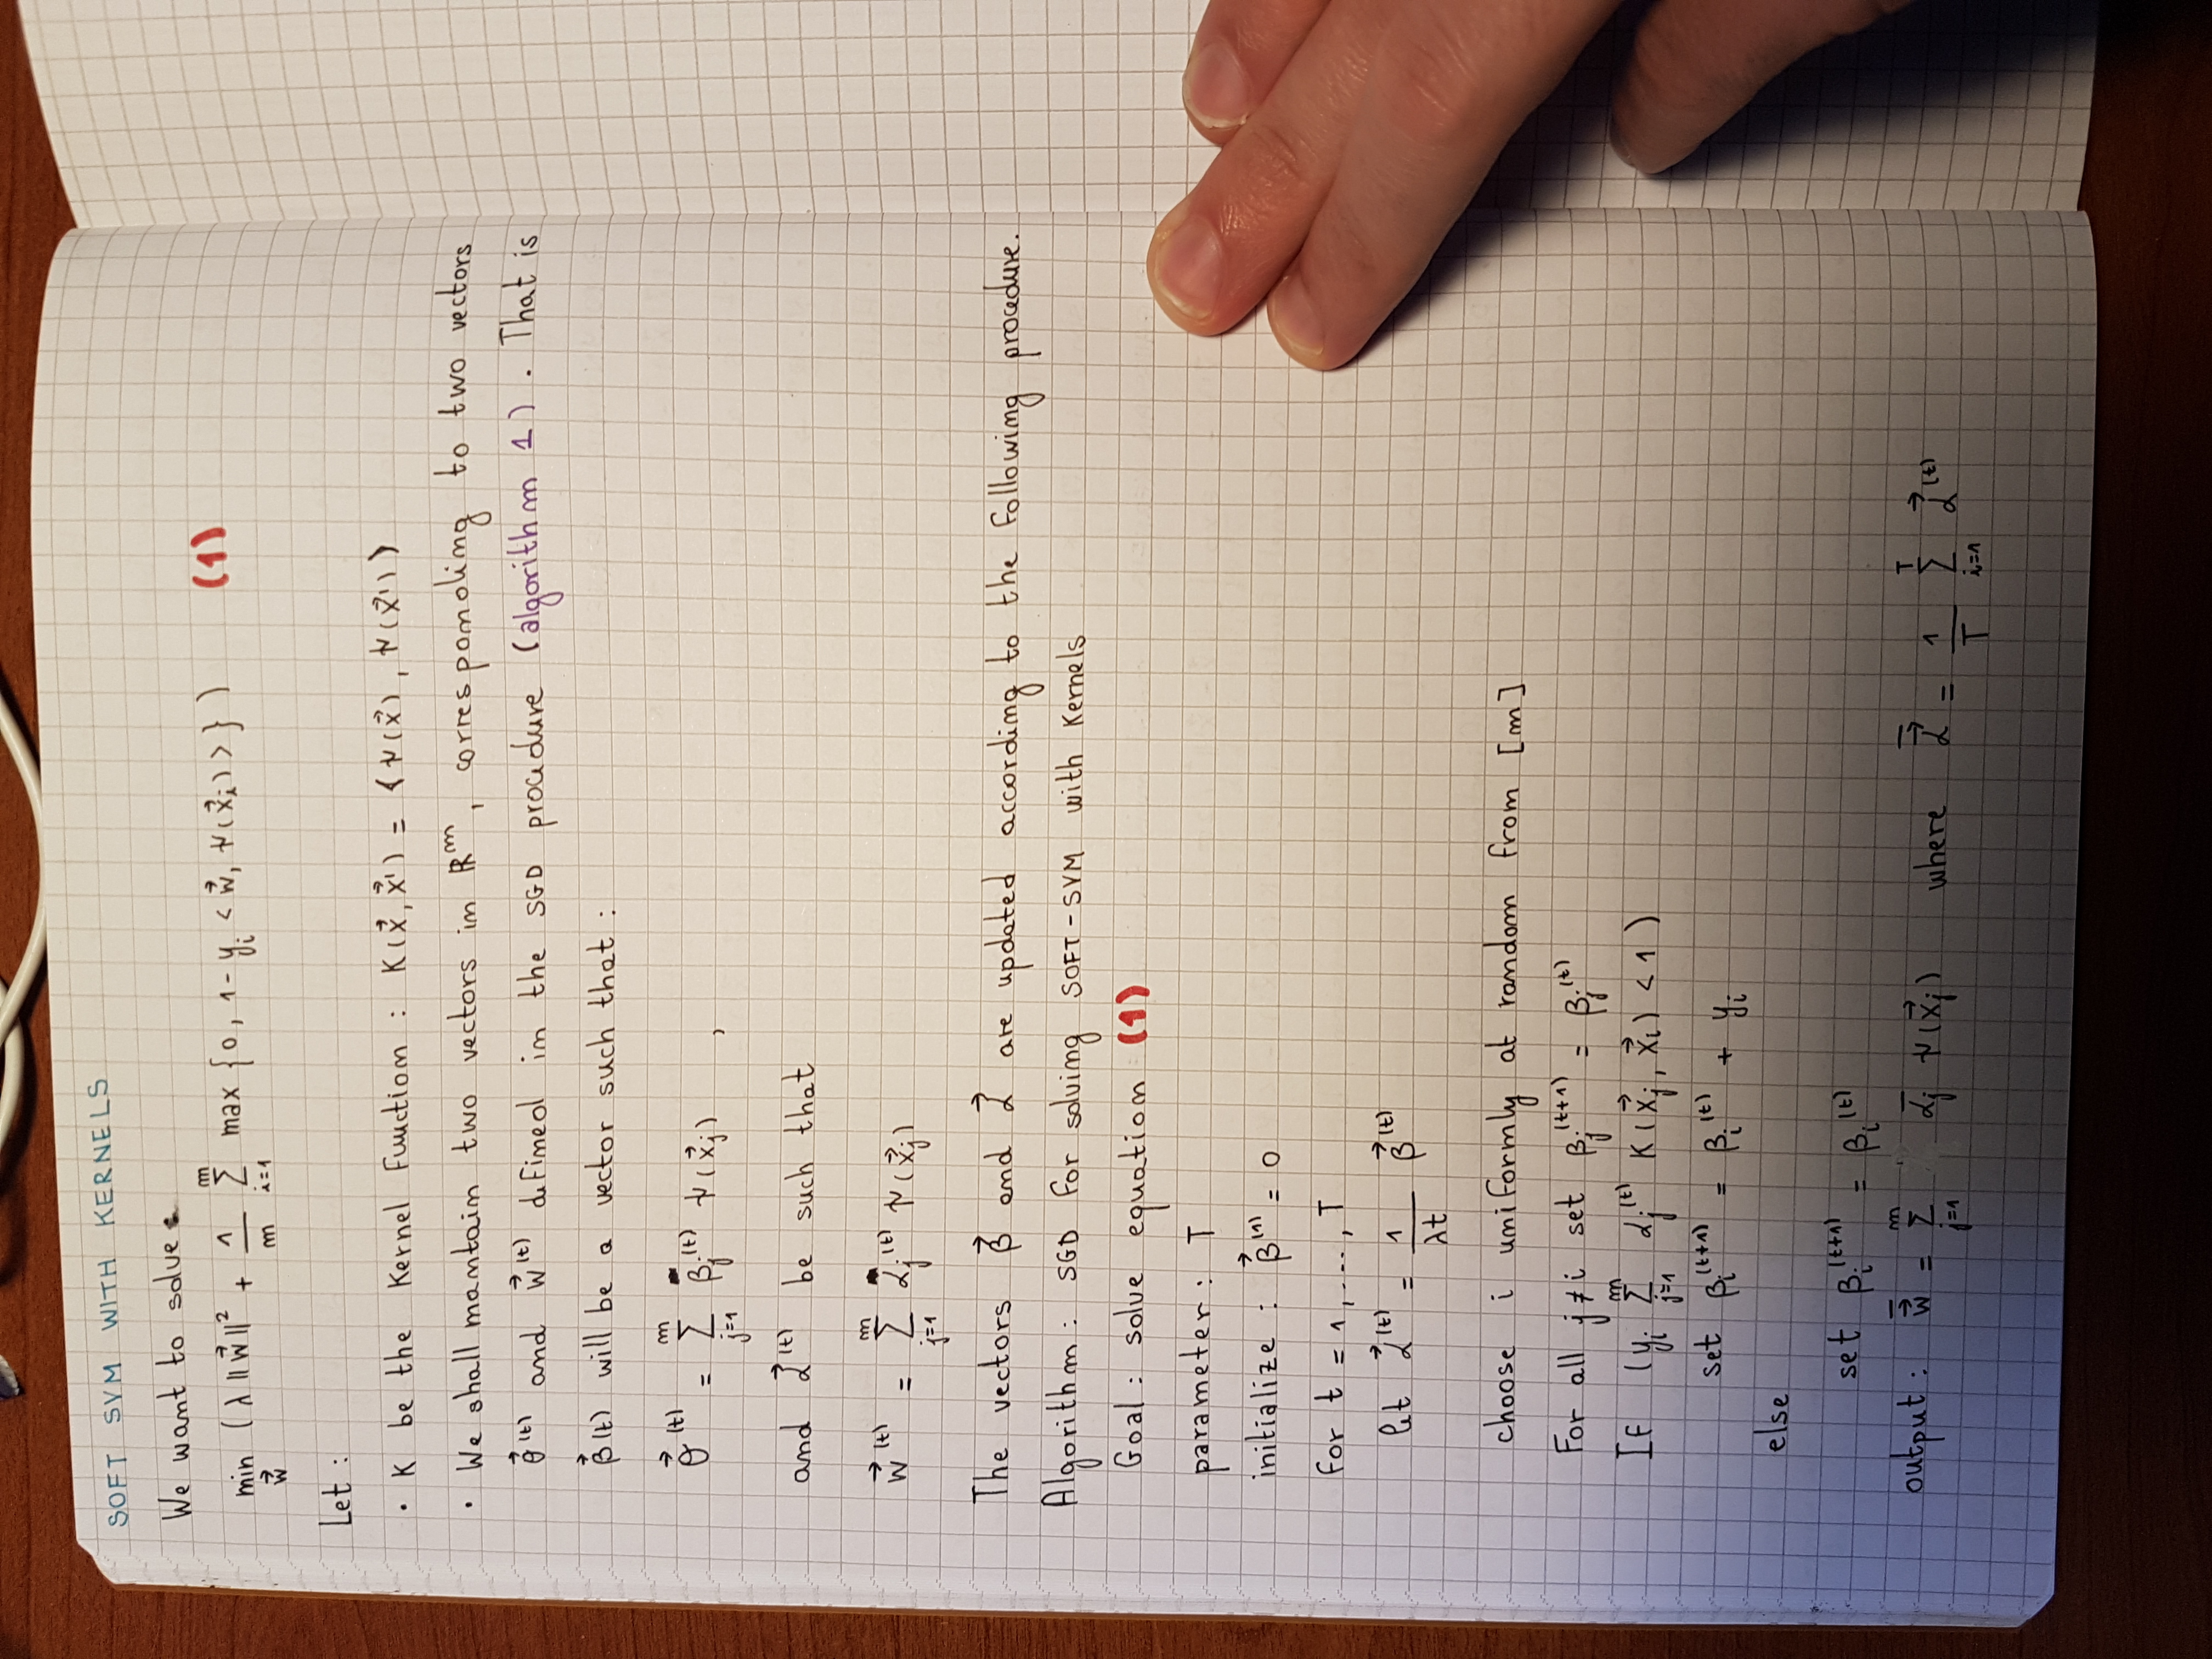 SOFT SVM WITH KERNELS
We want to solve
min_{\vec{w}} ( λ ||\vec{w}||² + \frac{1}{m} \sum_{i=1}^{m} max { 0, 1 - y_i < \vec{w}, ψ(\vec{x}_i) > } ) (1)
Let :
• K be the Kernel Function : K(\vec{x}, \vec{x}') = < ψ(\vec{x}), ψ(\vec{x}') >
• We shall mantain two vectors in ℝ^m, corresponding to two vectors
\vec{θ}^{(t)} and \vec{w}^{(t)} defined in the SGD procedure (algorithm 1). That is
\vec{β}(t) will be a vector such that :
\vec{θ}^{(t)} = \sum_{j=1}^{m} β_j^{(t)} ψ(\vec{x}_j) ,
and \vec{α}^{(t)} be such that
\vec{w}^{(t)} = \sum_{j=1}^{m} α_j^{(t)} ψ(\vec{x}_j)
The vectors \vec{β} and \vec{α} are updated according to the following procedure.
Algorithm : SGD for solving SOFT-SVM with Kernels
Goal : solve equation (1)
parameter : T
initialize : \vec{β}^{(1)} = 0
for t = 1, ..., T
let \vec{α}^{(t)} = \frac{1}{λt} \vec{β}^{(t)}
choose i uniformly at random from [m]
For all j ≠ i set β_j^{(t+1)} = β_j^{(t)}
If ( y_i \sum_{j=1}^{m} α_j^{(t)} K(\vec{x}_j, \vec{x}_i) < 1 )
set β_i^{(t+1)} = β_i^{(t)} + y_i
else
set β_i^{(t+1)} = β_i^{(t)}
output : \bar{\vec{w}} = \sum_{j=1}^{m} \bar{α}_j ψ(\vec{x}_j) where \bar{\vec{α}} = \frac{1}{T} \sum_{i=1}^{T} \vec{α}^{(t)}